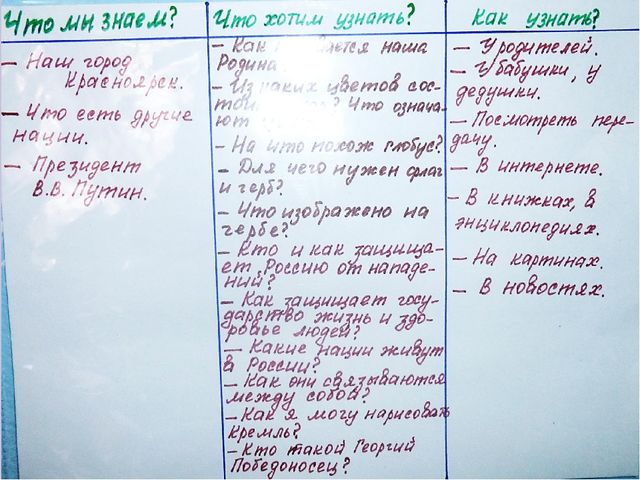 Что мы знаем?
– Наш город
Красноярск.
– Что есть другие
нации.
– Президент
В.В. Путин.
Что хотим узнать?
– Как наша
Родина
– Из каких цветов сос-
? Что означа-
ют
– На что похож глобус?
– Для чего нужен флаг
и герб?
– Что изображено на
гербе?
– Кто и как защища-
ет Россию от нападе-
ний?
– Как защищает госу-
дарство жизнь и здо-
ровье людей?
– Какие нации живут
в России?
– Как они связываются
между собой?
– Как я могу нарисовать
Кремль?
– Кто такой Георгий
Победоносец?
Как узнать?
– У родителей.
– У бабушки, у
дедушки.
– Посмотреть пере-
дачу.
– В интернете.
– В книжках, в
энциклопедиях.
– На картинах.
– В новостях.